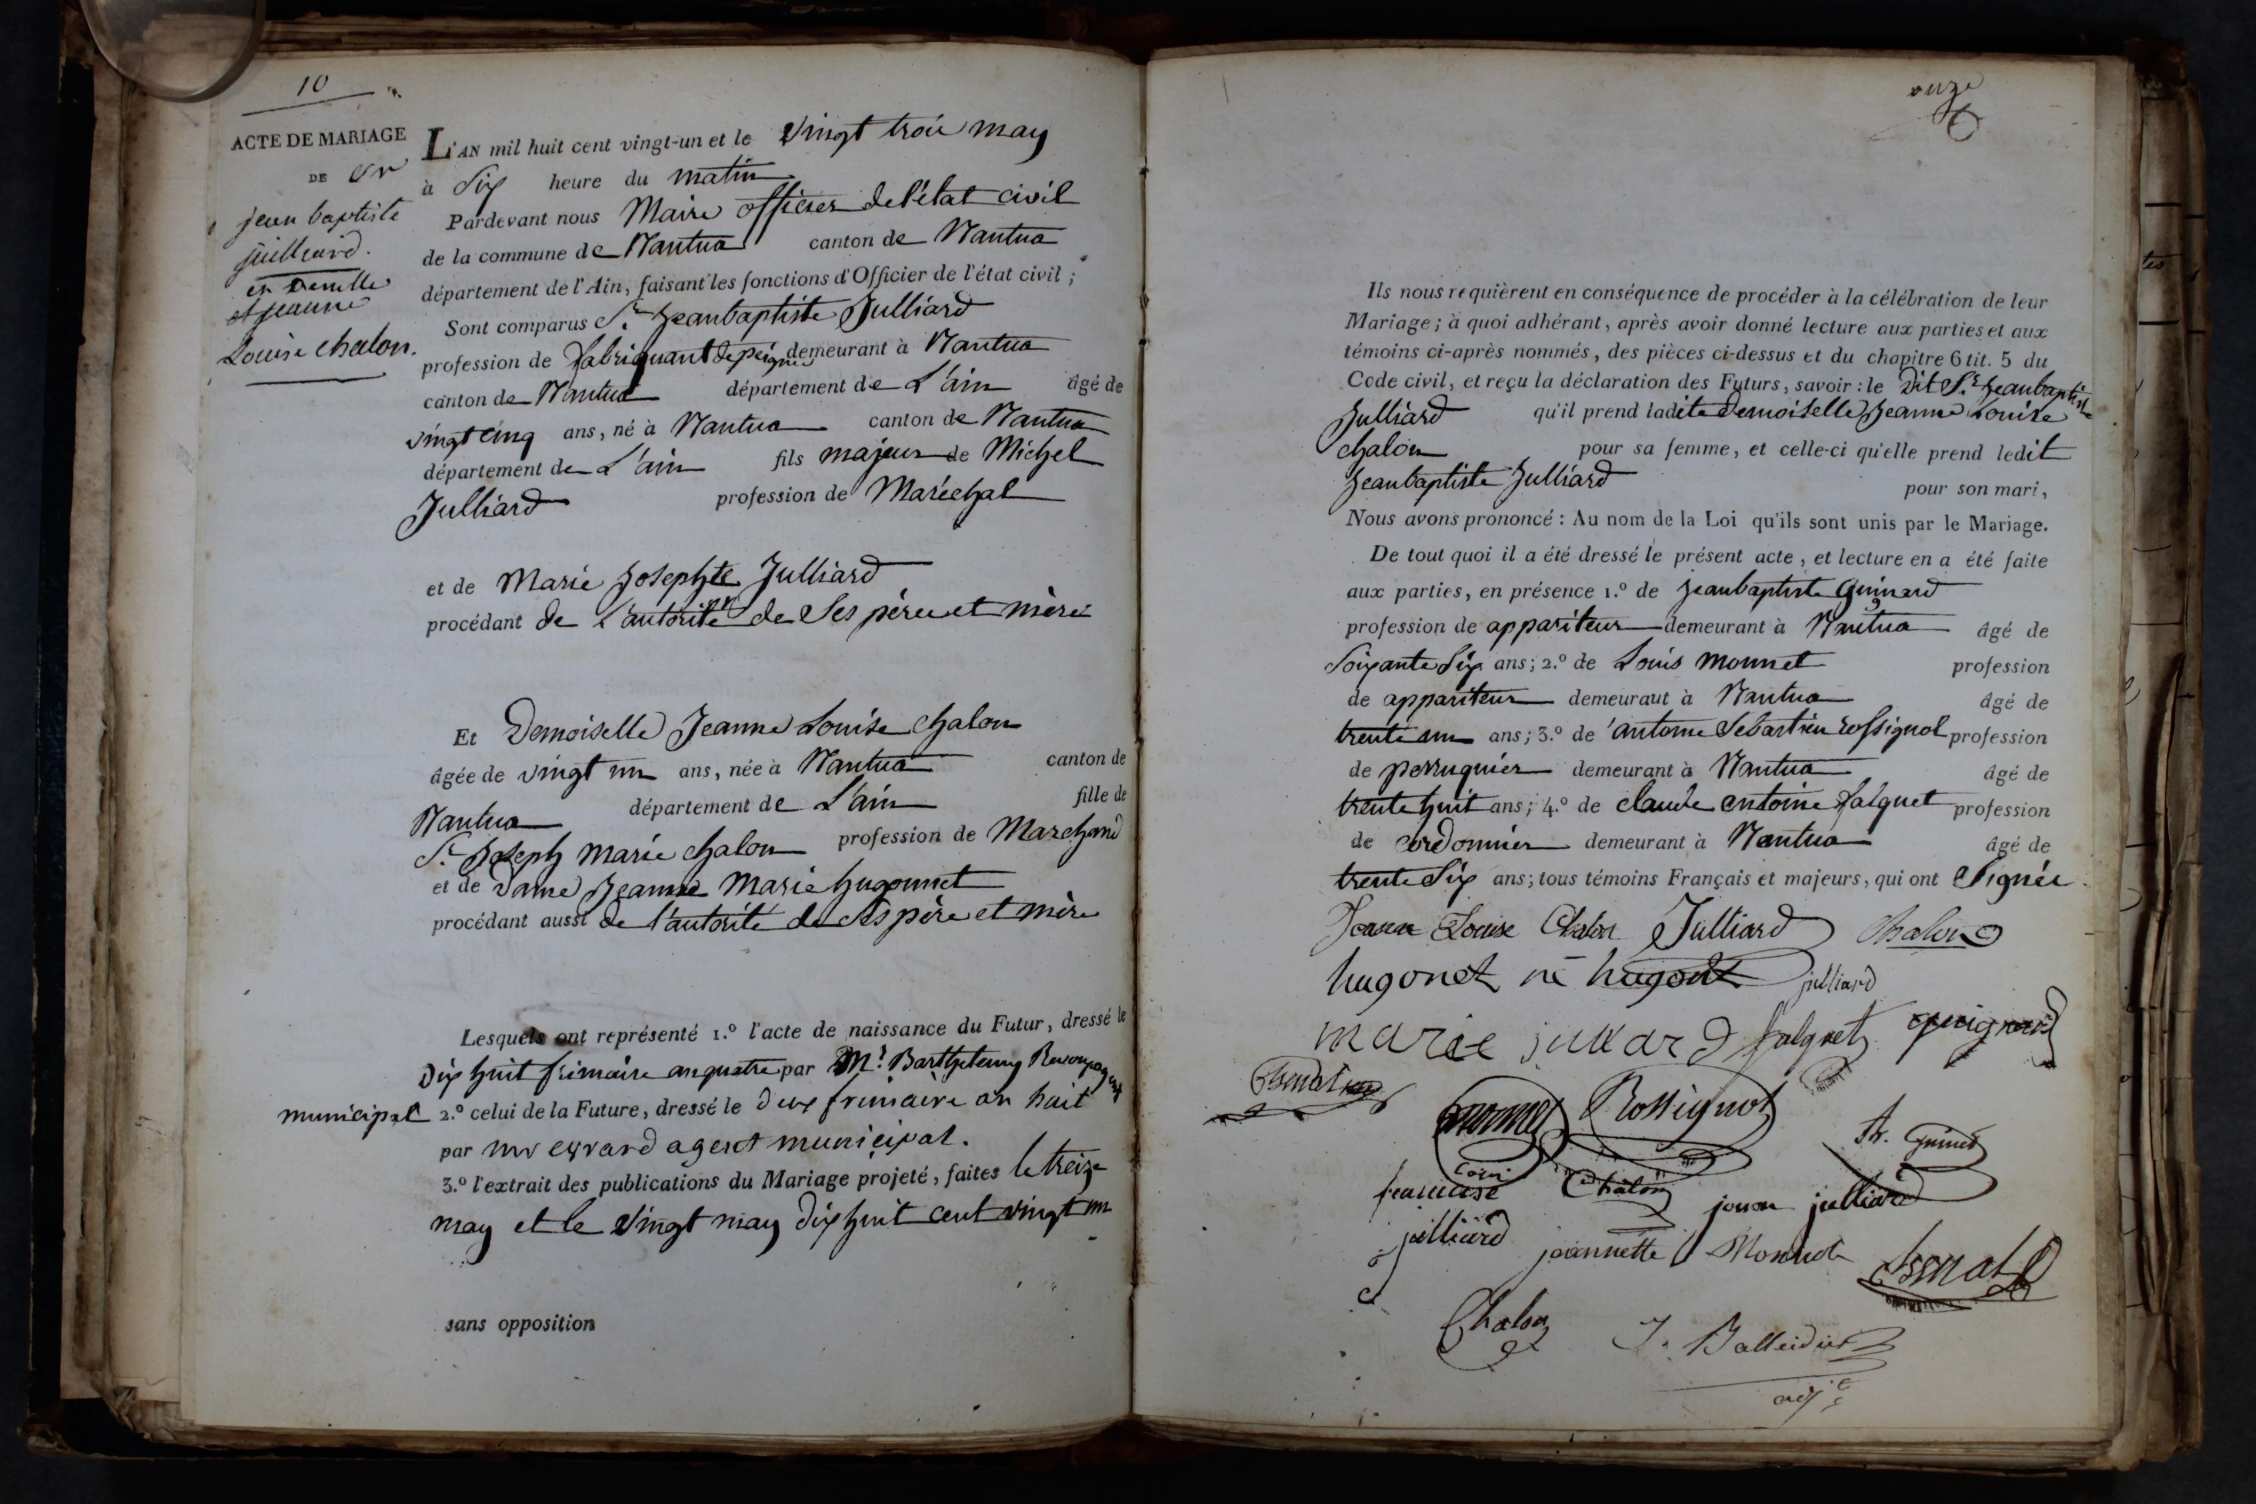 10
ACTE DE MARIAGE
DE Sr
jean baptiste
juilliard.
et Demlle
jeanne
Louise chalon.
L'AN mil huit cent vingt-un et le vingt trois may
à Six heure du matin
Pardevant nous Maire officier de l'état civil
de la commune de Nantua canton de Nantua
département de l'Ain, faisant les fonctions d'Officier de l'état civil ;
Sont comparus Sr. Jeanbaptiste Julliard
profession de fabriquant de peignes demeurant à Nantua
canton de Nantua département de L'ain âgé de
vingt cinq ans, né à Nantua canton de Nantua
département de L'ain fils majeur de Michel
Julliard profession de Maréchal
et de Marie Josephte Julliard
procédant de l'autorité de Ses père et mère
Et Demoiselle Jeanne Louise chalon
âgée de vingt un ans, née à Nantua canton de
Nantua département de L'ain fille de
Sr. Joseph Marie chalon profession de Marchand
et de Dame Jeanne Marie hugonnet
procédant aussi de l'autorité de Ses père et mère
Lesquels ont représenté 1.º l'acte de naissance du Futur, dressé le
Dix huit frimaire an quatre par Mr. Barthelemy
municipal 2.º celui de la Future, dressé le deux frimaire an huit
par mr evrard agent municipal.
3.º l'extrait des publications du Mariage projeté, faites le treize
may et le vingt may dix huit cent vingt un
sans opposition
onze
Ils nous requièrent en conséquence de procéder à la célébration de leur
Mariage ; à quoi adhérant, après avoir donné lecture aux parties et aux
témoins ci-après nommés, des pièces ci-dessus et du chapitre 6 tit. 5 du
Code civil, et reçu la déclaration des Futurs, savoir : le dit Sr. Jeanbaptiste
Julliard qu'il prend ladite Demoiselle Jeanne Louise
chalon pour sa femme, et celle-ci qu'elle prend ledit
Jeanbaptiste Julliard pour son mari,
Nous avons prononcé : Au nom de la Loi qu'ils sont unis par le Mariage.
De tout quoi il a été dressé le présent acte, et lecture en a été faite
aux parties, en présence 1.º de Jeanbaptiste Guinard
profession de appariteur demeurant à Nantua âgé de
Soixante Six ans ; 2.º de Louis Monnet profession
de appariteur demeuraut à Nantua âgé de
trente un ans ; 3.º de antoine Sebastien rossignol profession
de perruquier demeurant à Nantua âgé de
trente huit ans ; 4.º de claude antoine falquet profession
de cordonnier demeurant à Nantua âgé de
trente Six ans ; tous témoins Français et majeurs, qui ont Signés.
Jeanne Louise Chalon Julliard Chalon
hugonet né hugonet julliard
marie julliard falquet guignard
monnet Rossignol
françoise Chalon julliard
julliard jeannette Monnet
Chalon J. Balleidier
adjt